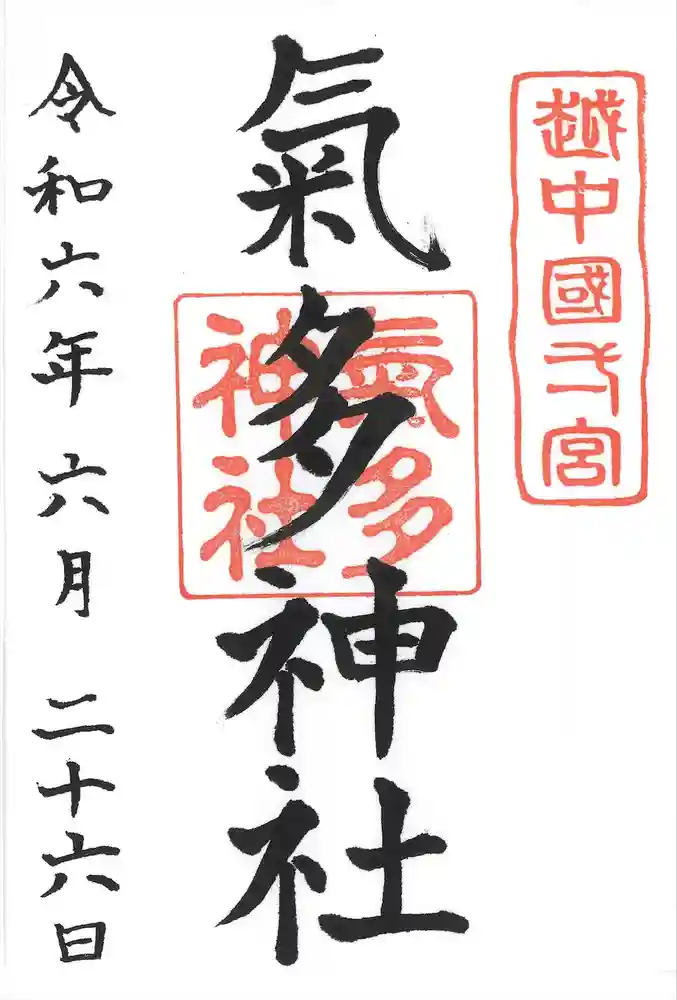 越中國一宮
氣多神社
氣多
神社
令和六年 六月 二十六日